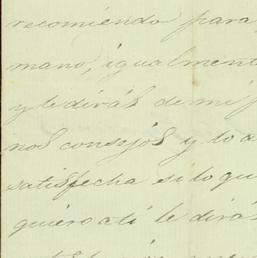 recomiendo para
mano, igualment
y le dirás de mi p
nos consejos y lo a
satisfecha si lo qu
quiero a ti le dirá